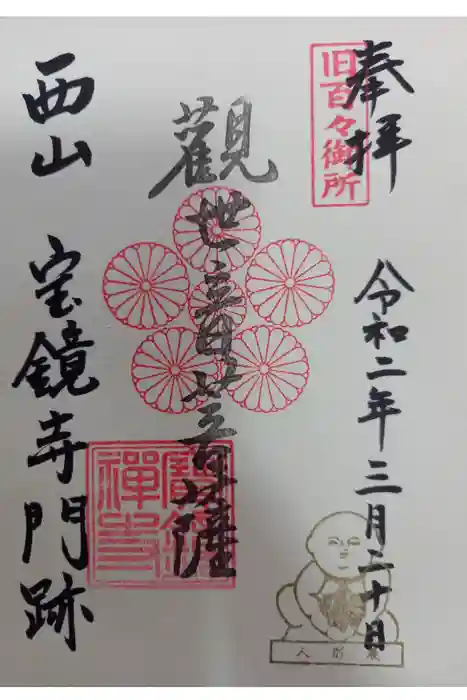 奉拝
旧百々御所
令和二年三月二十日
觀世音菩薩
西山 宝鏡寺門跡
寶鏡禪寺
人形展